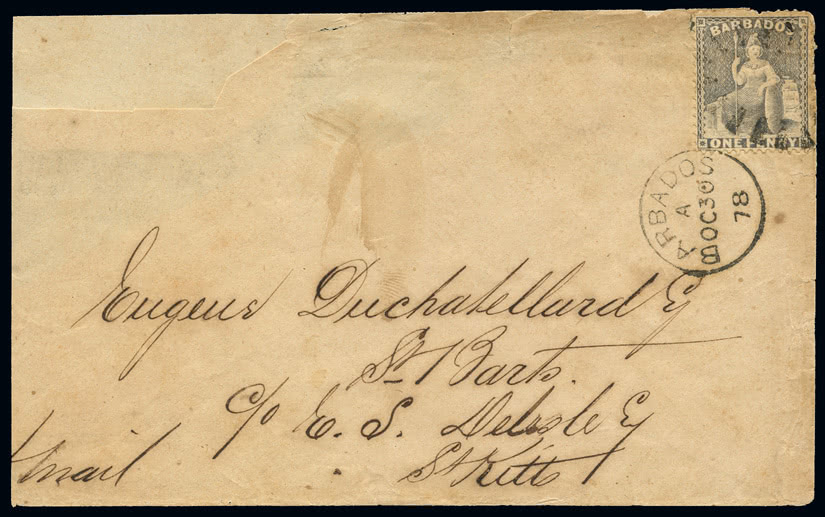 BARBADOS
ONE PENNY
BARBADOS
A
OC 30
78
Eugene Duchatellard Esq
St Barts.
c/o E. S. Delisle Esq
St Kitts
mail